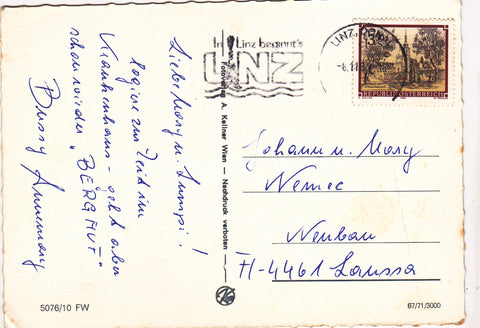 Liebe Mary u. Lumpi!
logiere zur Zeit im
Krankenhaus - geht aber
schon wieder
"BERGAUF"
Bussy Annemary
In Linz beginnt's
LINZ
LINZ, DONAU
REPUBLIK ÖSTERREICH
A. Kellner Wien — Nachdruck verboten —
Johann u. Mary
Nemec
Neubau
A-4461 Laussa
5076/10 FW
67/71/3000